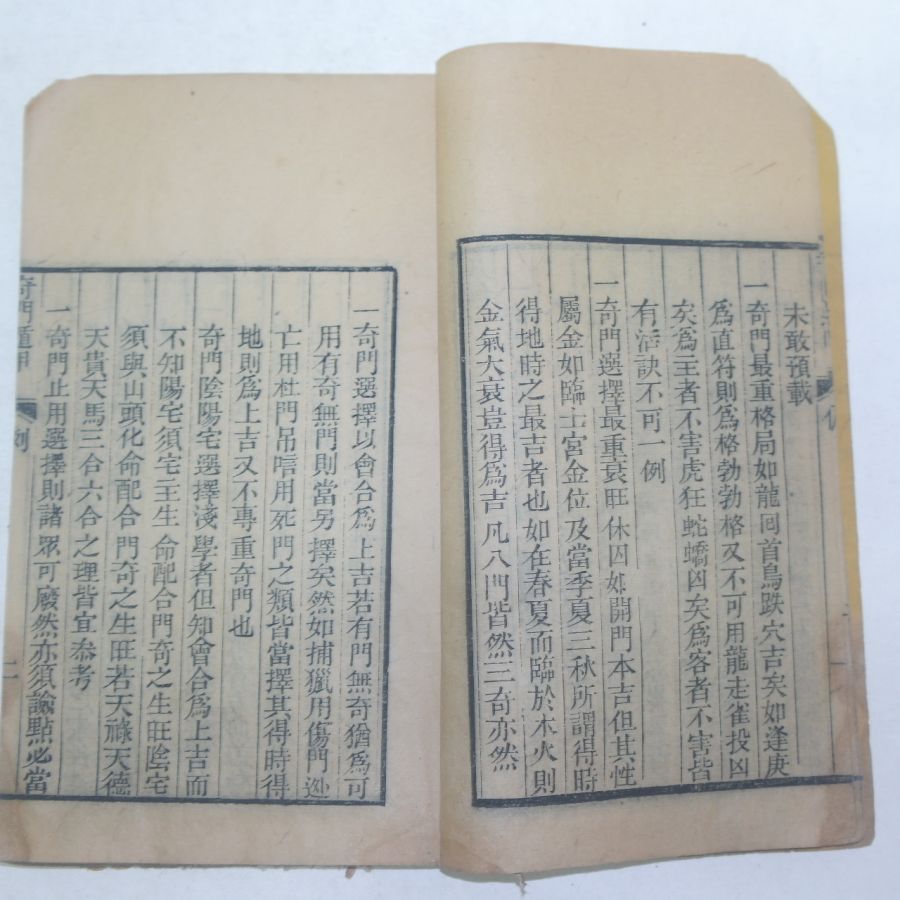 未敢預載
一奇門最重格局如龍囘首鳥跌穴吉矣如逢庚
爲直符則爲格勃勃格又不可用龍走雀投凶
矣爲主者不害虎狂蛇蟜凶矣爲客者不害皆
有活訣不可一例
一奇門選擇最重衰旺休囚如開門本吉但其性
屬金如臨土宮金位及當季夏三秋所謂得時
得地時之最吉者也如在春夏而臨於木火則
金氣大衰豈得爲吉凡八門皆然三奇亦然
一奇門選擇以會合爲上吉若有門無奇猶爲可
用有奇無門則當另擇矣然如捕獵用傷門逊
亡用杜門吊唁用死門之類皆當擇其得時得
地則爲上吉又不專重奇門也
奇門陰陽宅選擇淺學者但知會合爲上吉而
不知陽宅須宅主生命配合門奇之生旺陰宅
須與山頭化命配合門奇之生旺若天祿天德
天貴天馬三合六合之理皆宜叅考
一奇門止用選擇則諸眾可廢然亦須諭點必當
奇門遁甲
例
一